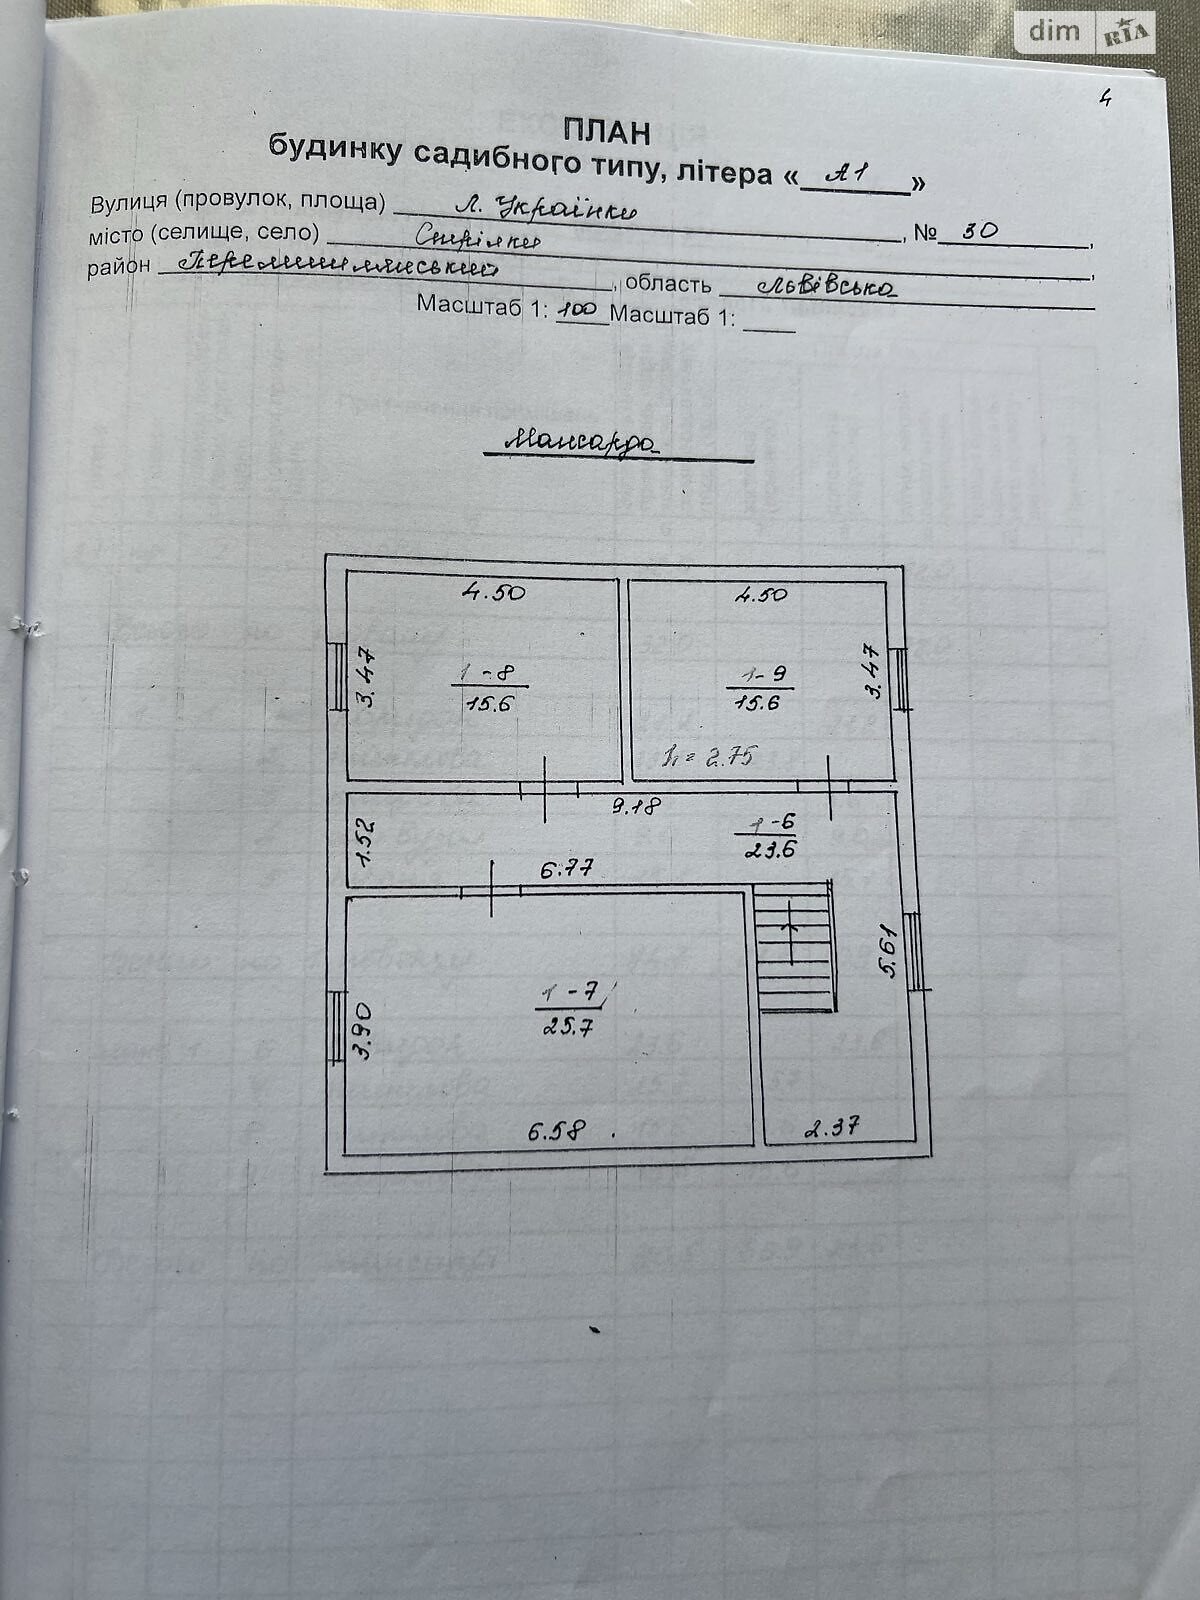 dim RIA
4
ПЛАН
будинку садибного типу, літера « А1 »
Вулиця (провулок, площа) Л. Українки, № 30,
місто (селище, село)
район Перемишлянський, область Львівська
Масштаб 1: 100 Масштаб 1:
Мансарда
4.50 4.50
3.47 1-8 15.6 1-9 15.6 3.47
h = 2.75
9.18
1.52 1-6 23.6
6.77
5.61
3.90 1-7 25.7
6.58 2.37